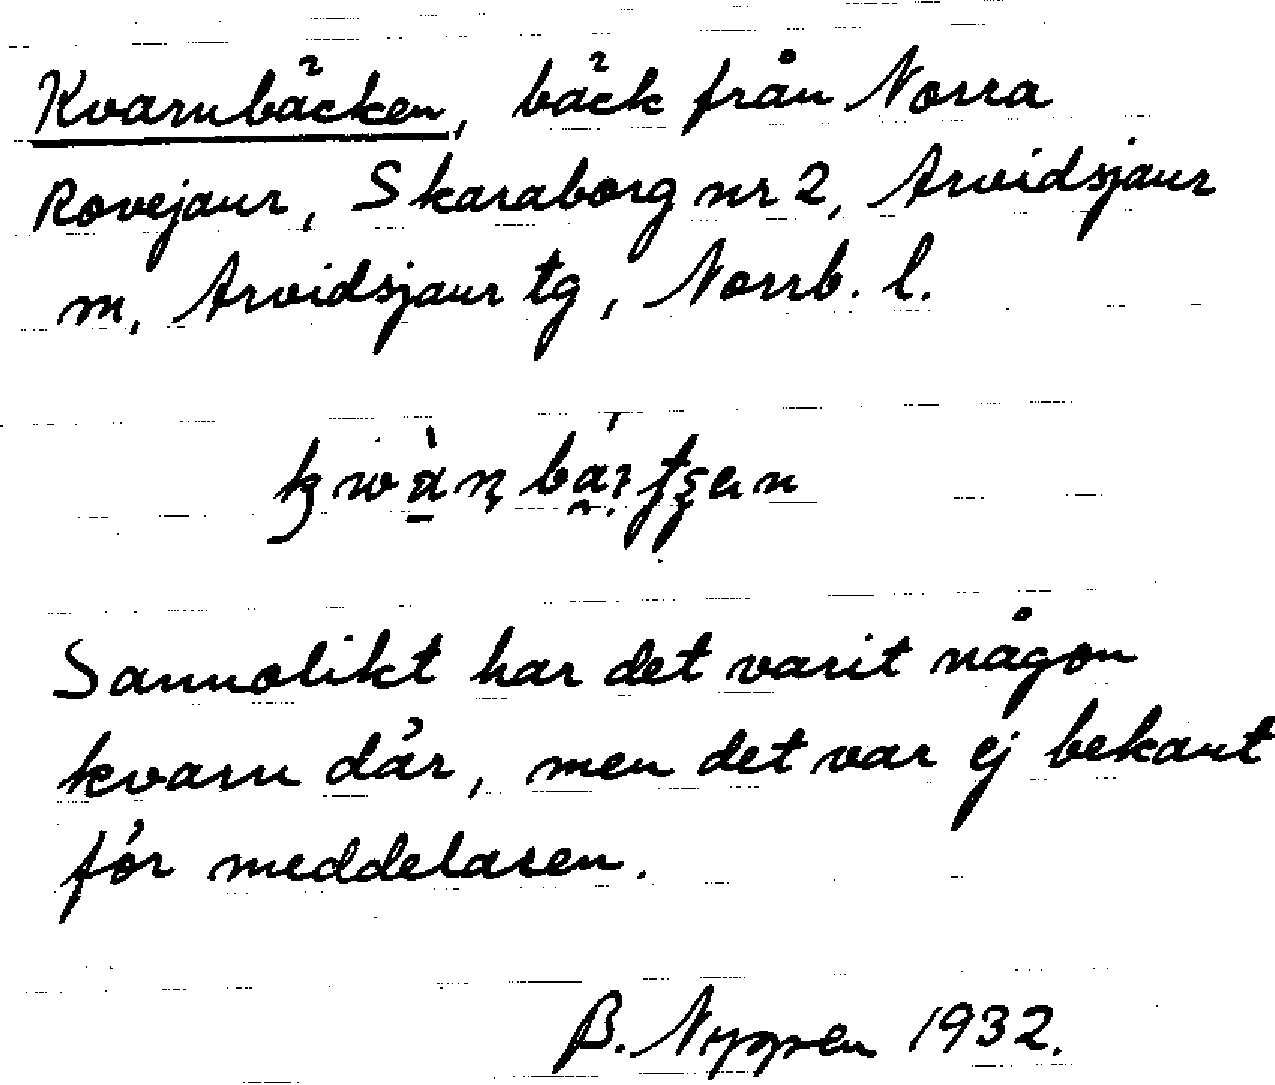 Kvarnbäcken, bäck från Norra
Rovejaur, Skaraborg nr 2, Arvidsjaur
m, Arvidsjaur tg, Norrb. l.
Sannolikt har det varit någon
kvarn där, men det var ej bekant
för meddelaren.
B. Nyppen 1932.